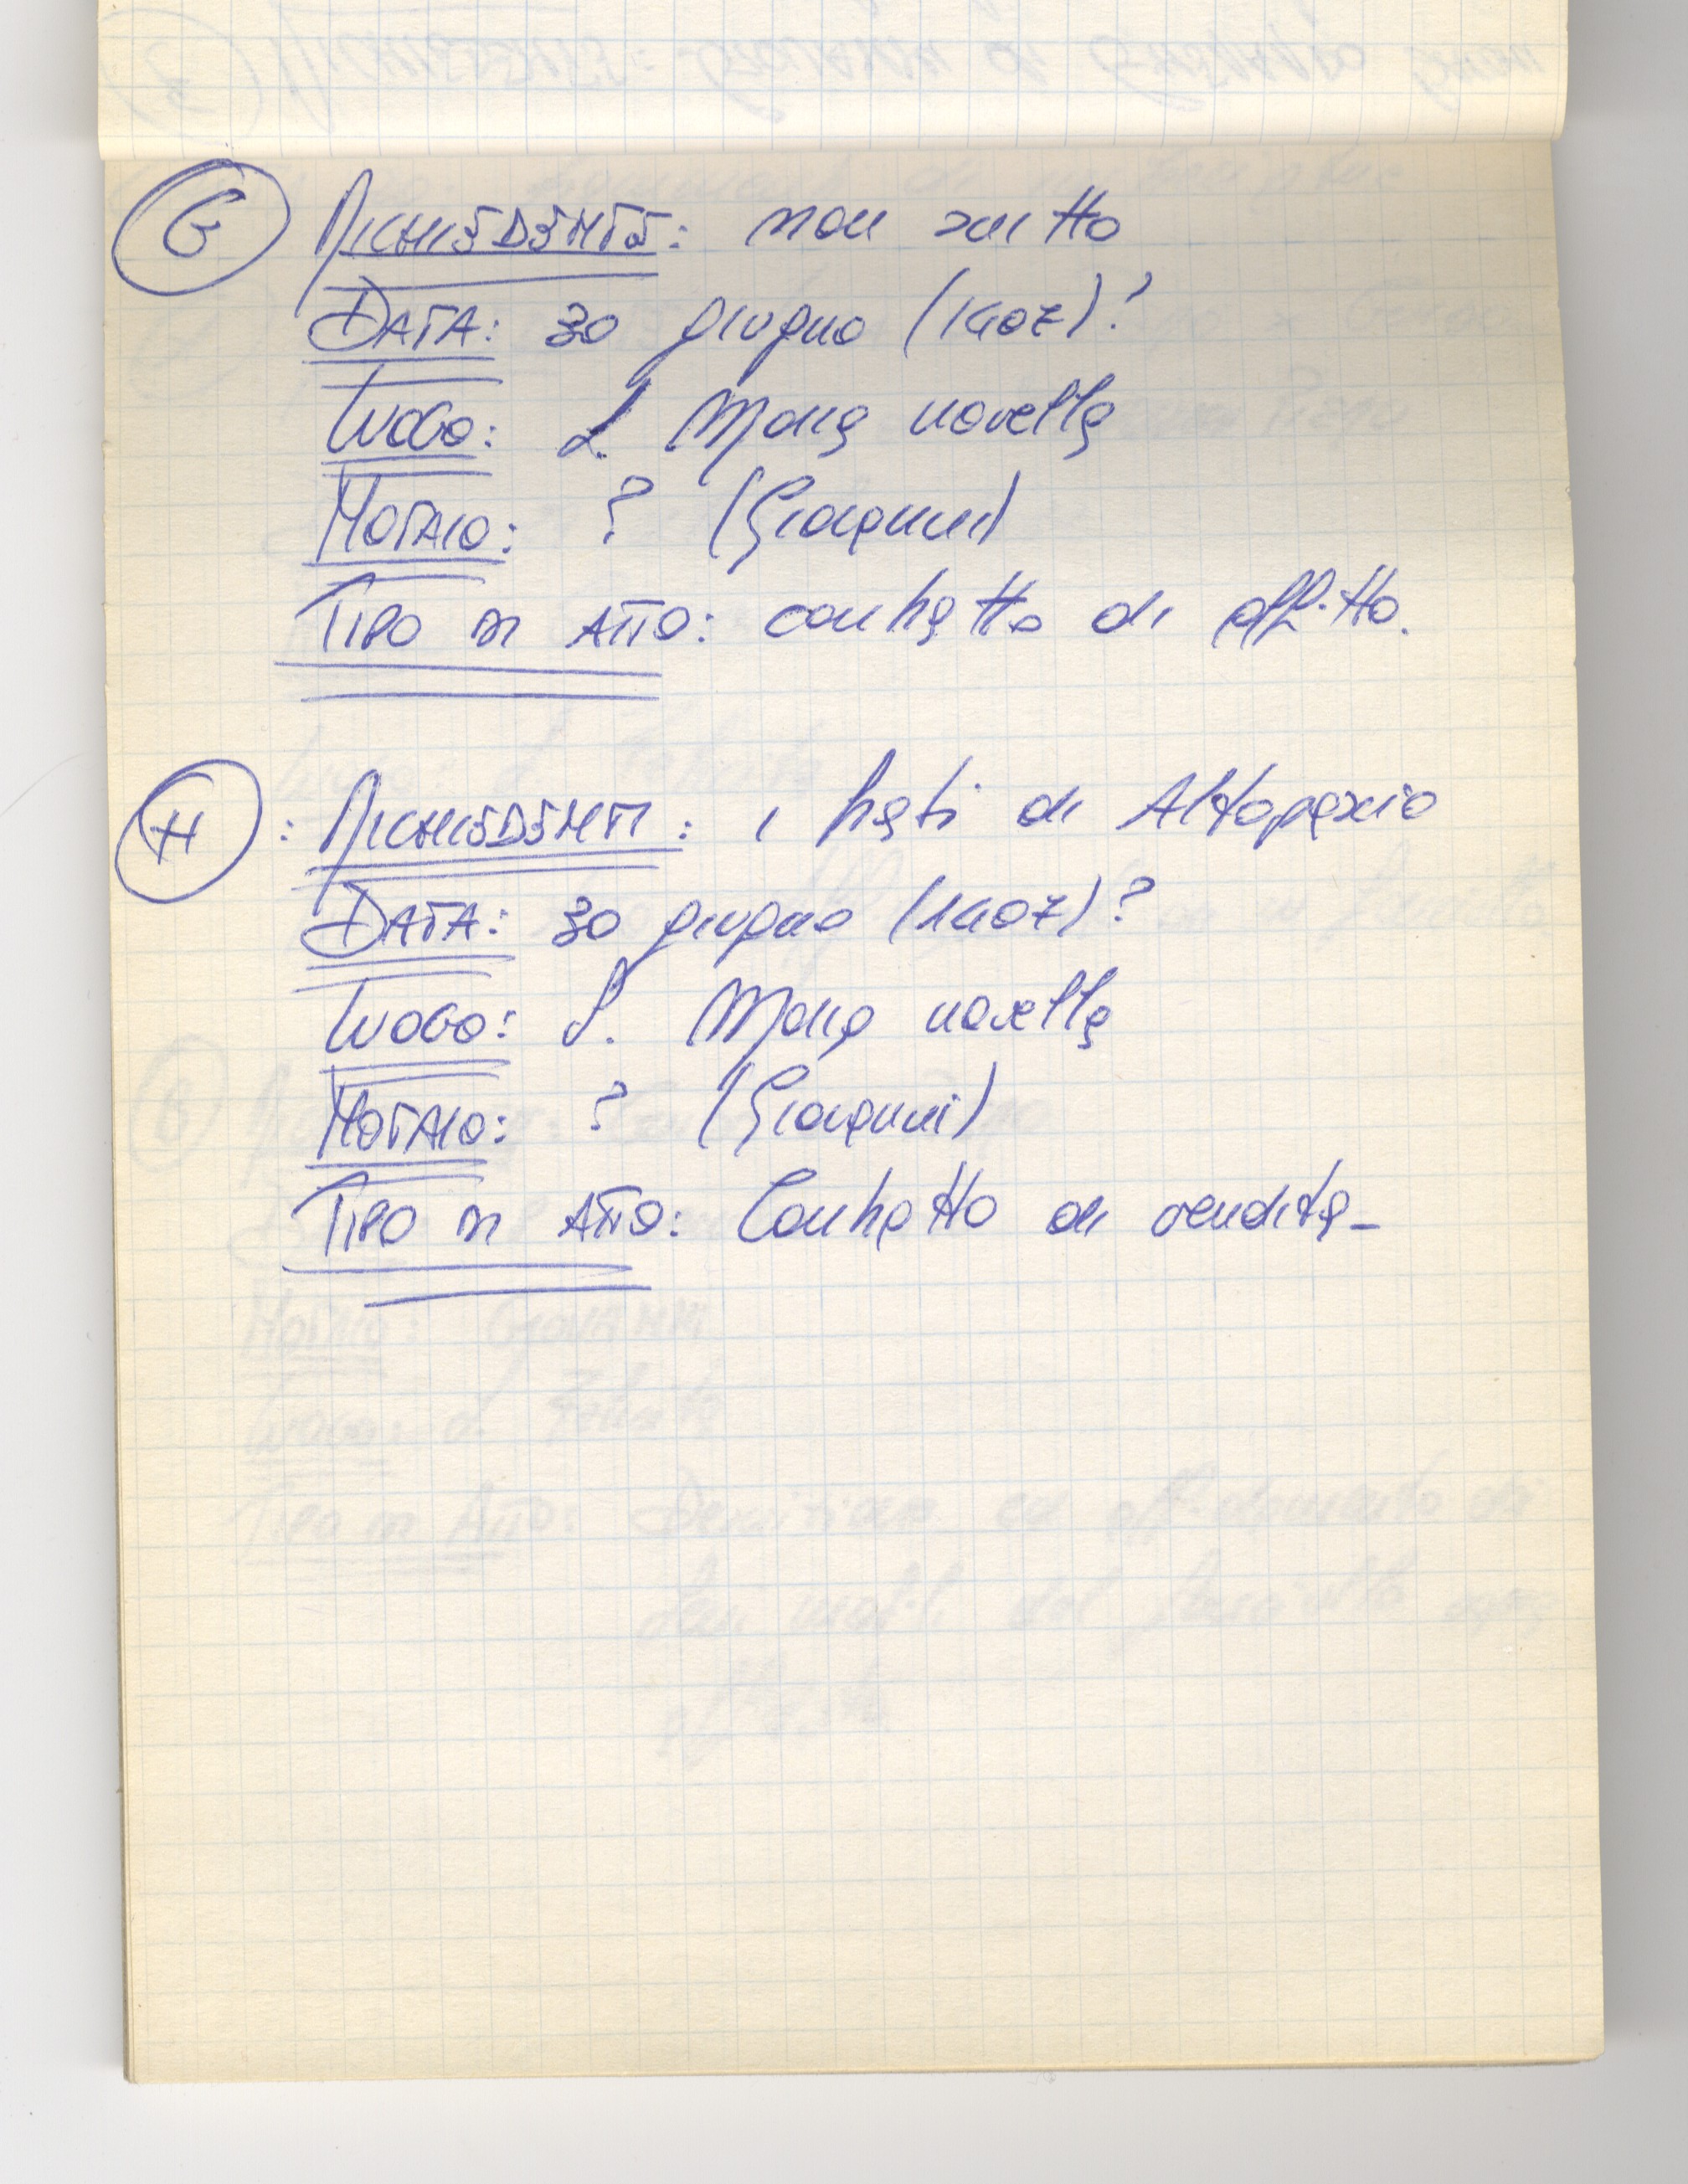 G RICHIEDENTE: non scritto
DATA: 30 giugno (1407)?
LUOGO: S. Maria novella
NOTAIO: ? (Giovanni)
TIPO DI ATTO: contratto di affitto.
H : RICHIEDENTI: i frati di Altopascio
DATA: 30 giugno (1407)?
LUOGO: S. Maria novella
NOTAIO: ? (Giovanni)
TIPO DI ATTO: Contratto di vendita-